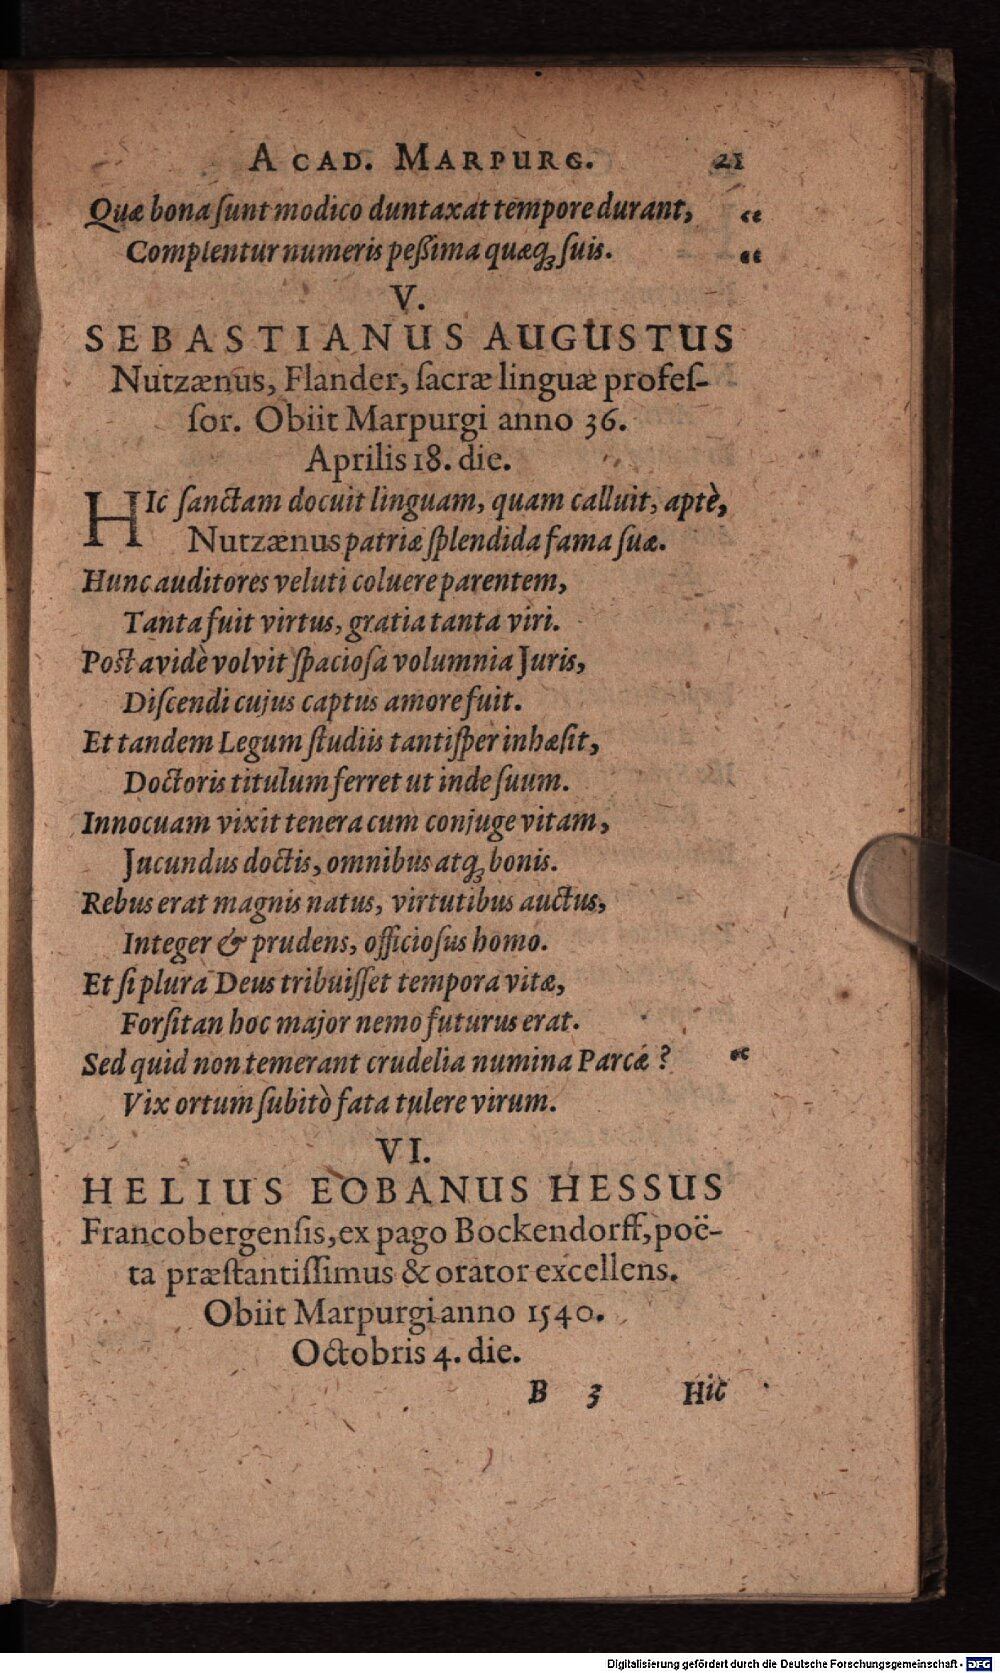 ACAD. MARPURG. 21
Quæ bona ſunt modico duntaxat tempore durant, “
Complentur numeris peßima quæq; ſuis. “
V.
SEBASTIANUS AUGUSTUS
Nutzænus, Flander, ſacræ linguæ profeſ-
ſor. Obiit Marpurgi anno 36.
Aprilis 18. die.
HIc ſanctam docuit linguam, quam calluit, aptè,
Nutzænus patriæ ſplendida fama ſuæ.
Hunc auditores veluti coluere parentem,
Tanta fuit virtus, gratia tanta viri.
Poſt avidè volvit ſpacioſa volumnia Juris,
Diſcendi cujus captus amore fuit.
Et tandem Legum ſtudiis tantiſper inhæſit,
Doctoris titulum ferret ut inde ſuum.
Innocuam vixit tenera cum conjuge vitam,
Jucundus doctis, omnibus atq; bonis.
Rebus erat magnis natus, virtutibus auctus,
Integer & prudens, officioſus homo.
Et ſi plura Deus tribuiſſet tempora vitæ,
Forſitan hoc major nemo futurus erat.
Sed quid non temerant crudelia numina Parcæ ? “
Vix ortum ſubitò fata tulere virum.
VI.
HELIUS EOBANUS HESSUS
Francobergenſis, ex pago Bockendorff, poë-
ta præſtantiſſimus & orator excellens.
Obiit Marpurgi anno 1540.
Octobris 4. die.
B 3 Hic
Digitalisierung gefördert durch die Deutsche Forschungsgemeinschaft - DFG